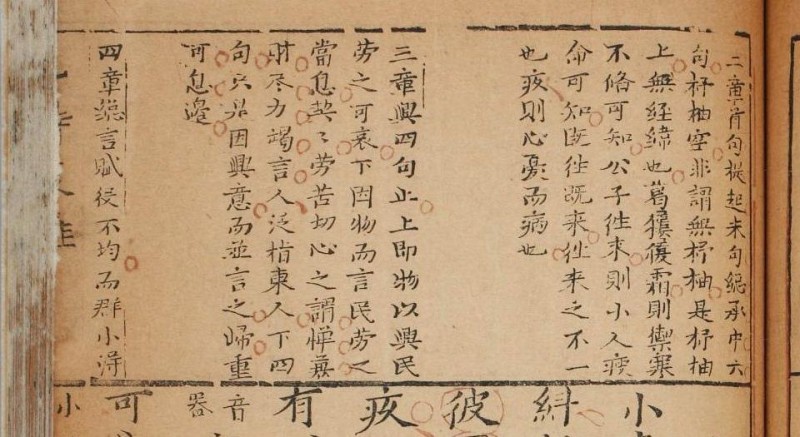 二章首句提起末句総承中六
句杼柚空非謂無杼柚是杼柚
上無経緯也葛屨履霜則禦寒
不脩可知公子徃来則小人疲
命可知既徃既来徃来之不一
也疚則心憂而病也
三章興四句止上即物以興民
劳之可哀下因物而言民劳之
當息契〻劳苦切心之謂惮兼
財尽力竭言人泛指東人下四
句只是因興意而並言之帰重
可息邉
四章総言賦役不均而群小淂
小
糾
彼
疚
有
音
器
可
小